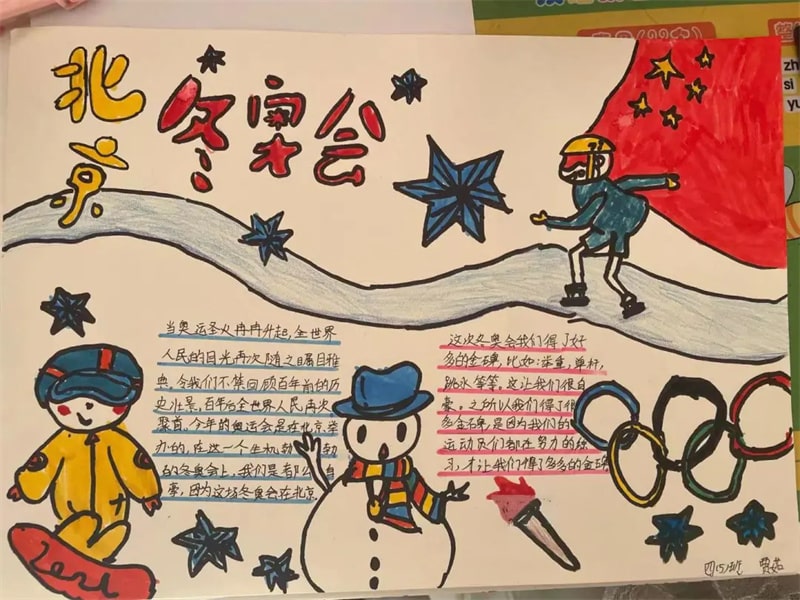 北京
冬奥会
当奥运圣火冉冉升起,全世界
人民的目光再次随之瞩目雅
典,令我们不禁回顾百年前的历
史壮景,百年后全世界人民再次
聚首,今年的奥运会是在北京举
办的,在这一个生机勃勃
的冬奥会上,我们是都
豪,因为这场冬奥会在北京
这次冬奥会我们得了好
多的金牌,比如:举重,单杆,
跳水等等,这让我们很自
豪。之所以我们得了很
多金牌是因为我们的
运动员们都在努力的练
习,才让我们得了多多的金牌
zh
si
yu
四(5)班